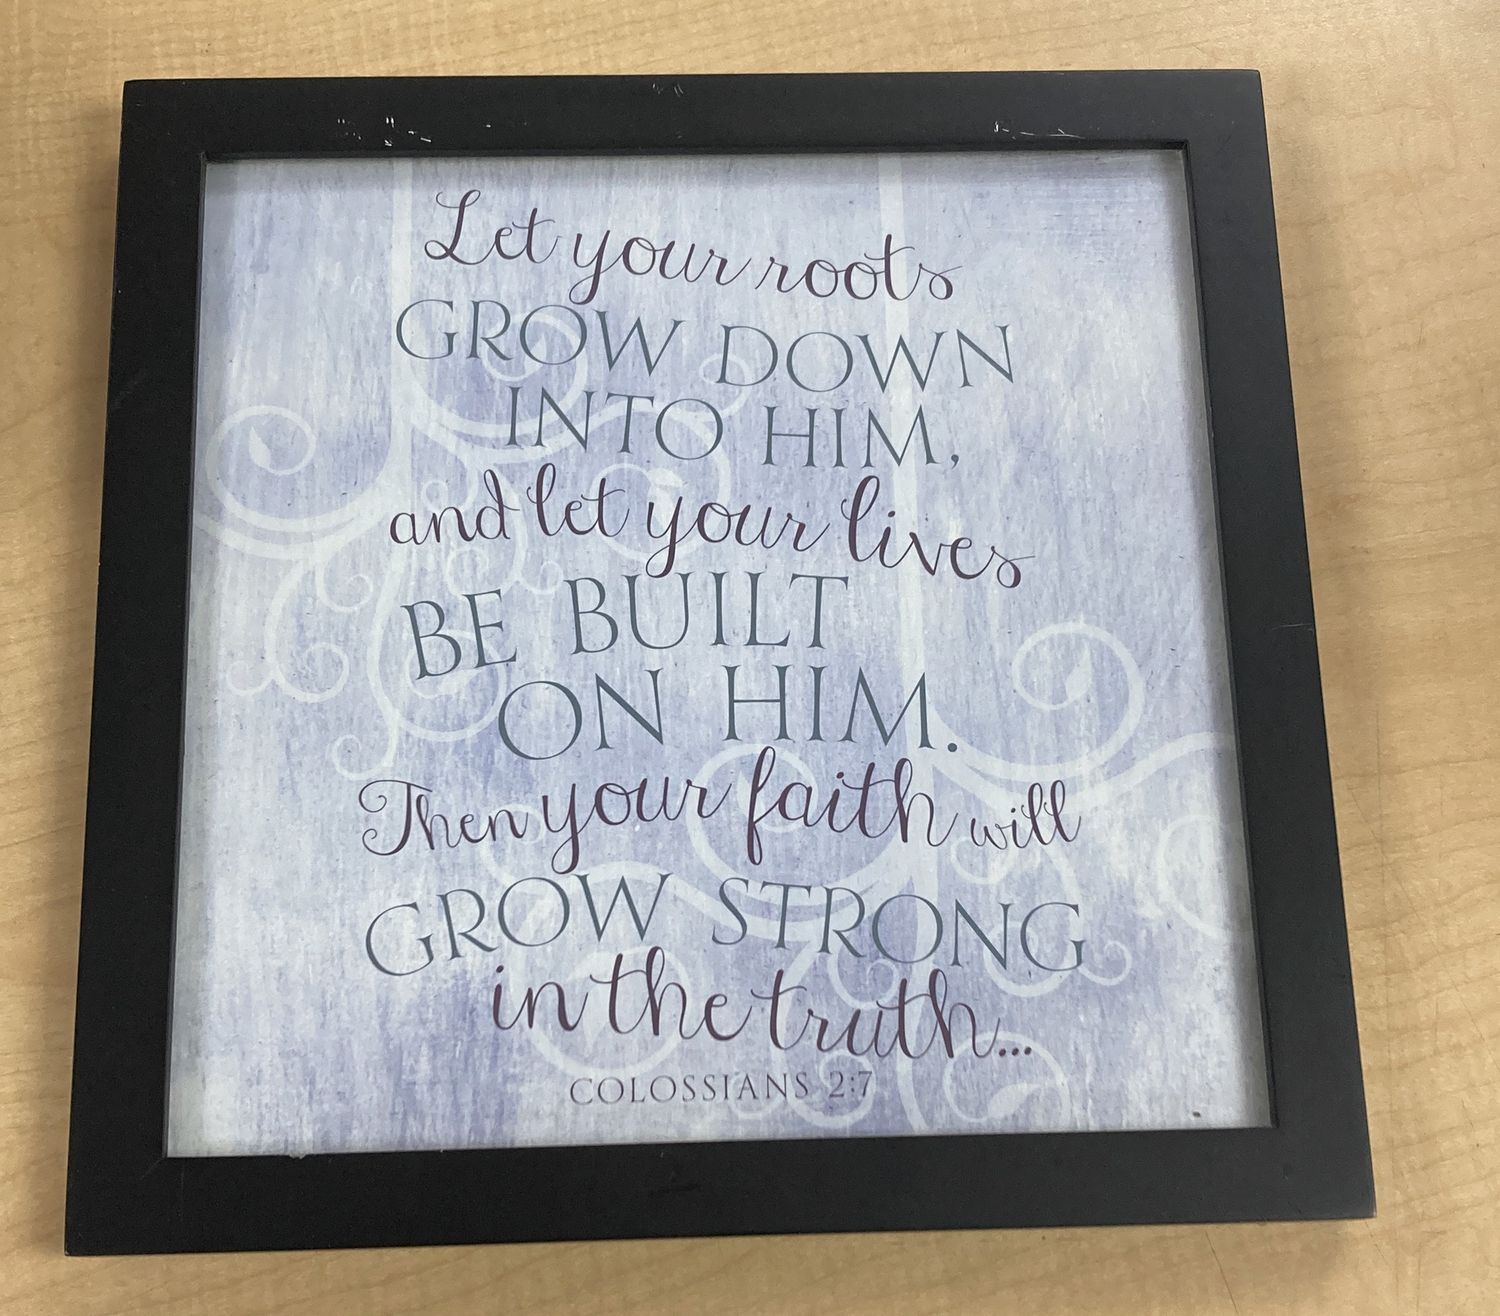 Let your roots
GROW DOWN
INTO HIM,
and let your lives
BE BUILT
ON HIM.
Then your faith will
GROW STRONG
in the truth...
COLOSSIANS 2:7